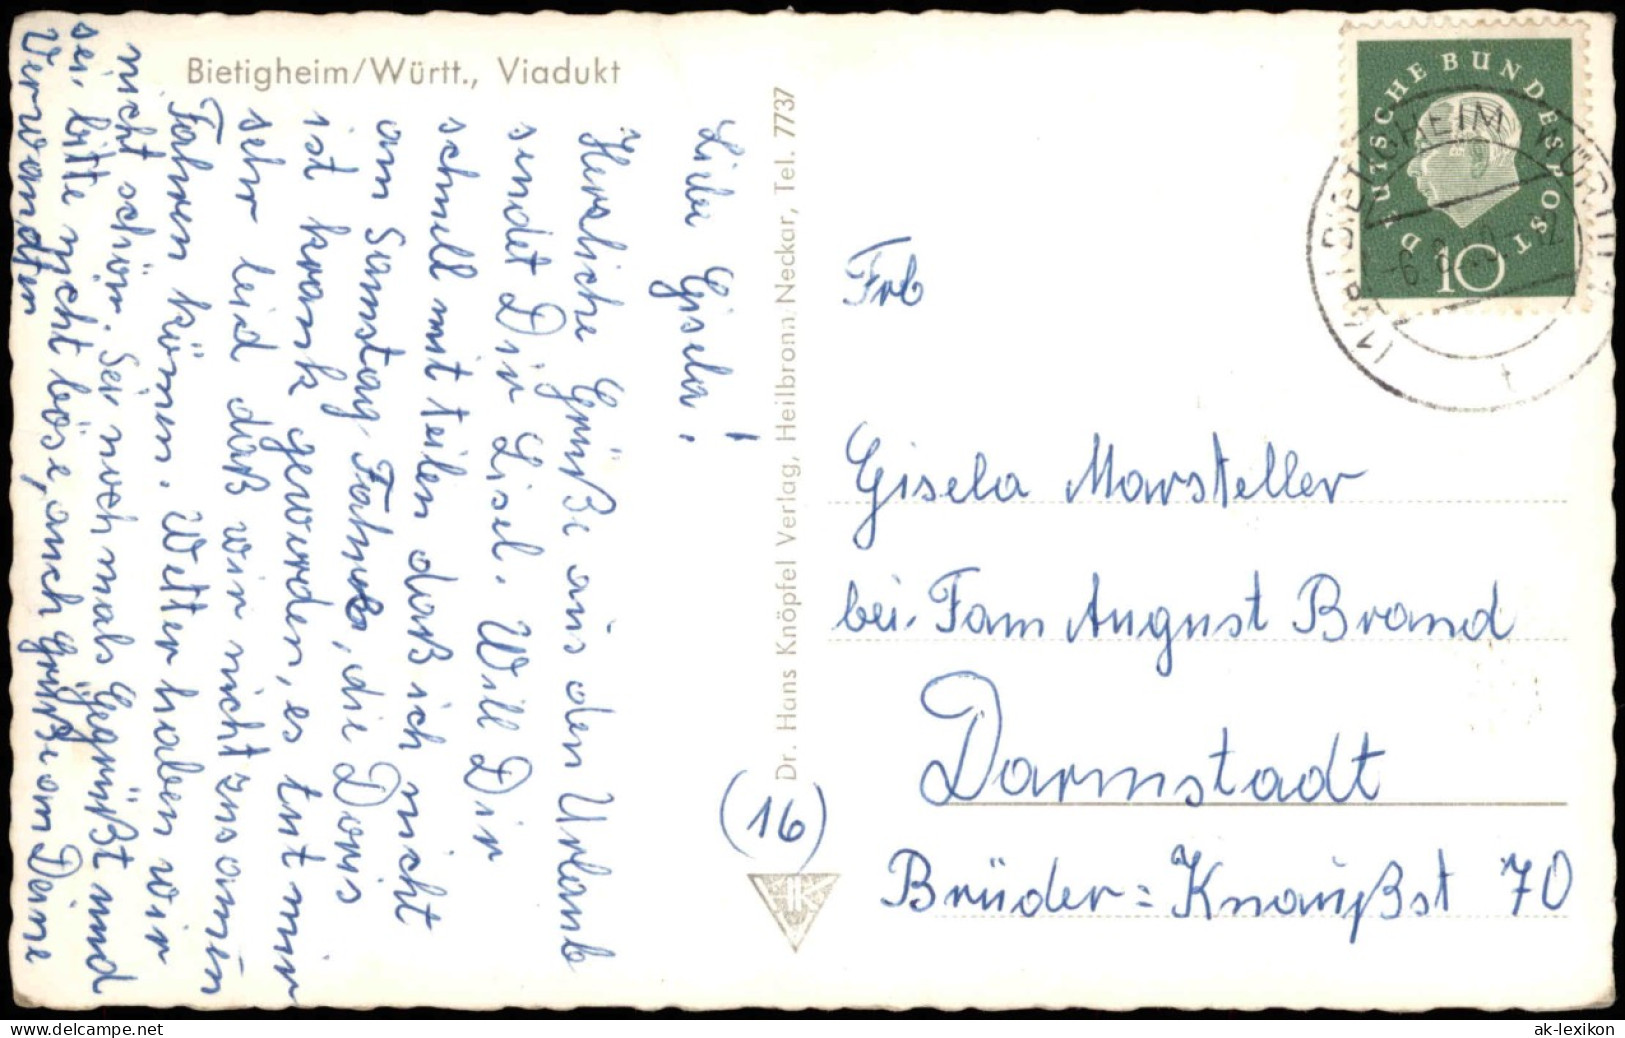 Bietigheim/Württ., Viadukt
Liebe Gisela!
Hersliche Grüße aus den Urlaub
sendet Dir Lisel. Will Dir
schnell mit teilen daß ich nicht
am Samstag Fahre, die Doris
ist krank geworden, es tut mir
sehr leid daß wir nicht zusamen
Fahren könen. Wetter haben wir
nicht schön. Sei nochmals Gegrüßt und
sei bitte nicht böse, auch Grüße an Deine
Verwandten
Dr. Hans Knöpfel Verlag, Heilbronn/Neckar, Tel. 7737
HK
(16)
DEUTSCHE BUNDESPOST
10
BIETIGHEIM (WÜRTT)
Frl
Gisela Marsteller
bei. Fam August Brand
Darmstadt
Brüder=Knaußst 70
delcampe.net
ak-lexikon